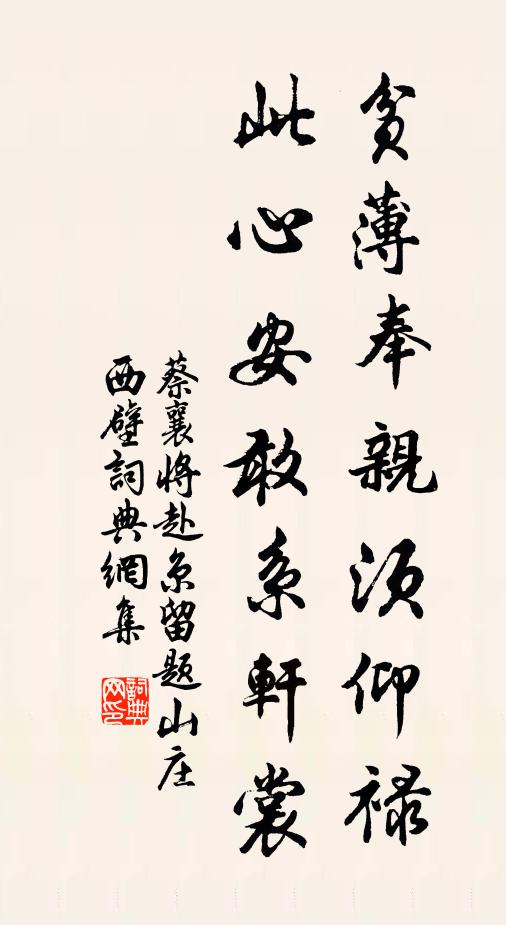 貧薄奉親須仰禄
此心安敢系軒裳
蔡襄將赴京留題山庄
西壁詞典網集
詞典
网印